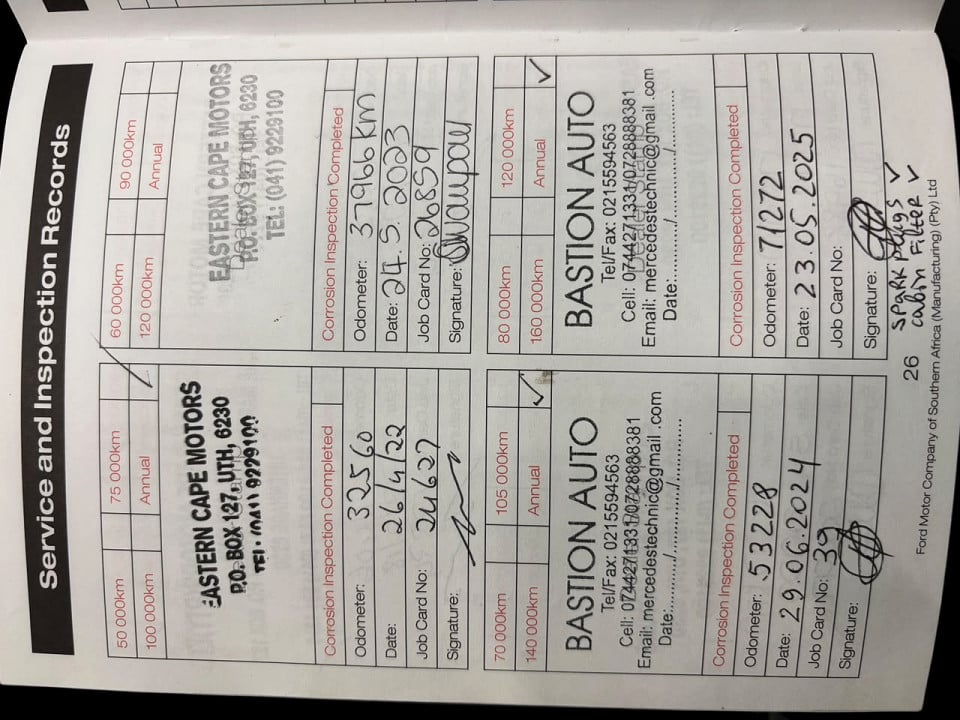 Service and Inspection Records
50 000km
75 000km
100 000km
Annual
EASTERN CAPE MOTORS
P.O. BOX 127, UTH, 6230
TEL: (041) 9229100
Corrosion Inspection Completed
Odometer: 32560
Date: 26/4/22
Job Card No: 24627
Signature:
60 000km
90 000km
120 000km
Annual
EASTERN CAPE MOTORS
P.O. BOX 127, UTH, 6230
TEL: (041) 9229100
Corrosion Inspection Completed
Odometer: 37966 km
Date: 24.5.2023
Job Card No: 26859
Signature:
70 000km
105 000km
140 000km
Annual ✓
BASTION AUTO
Tel/Fax: 0215594563
Cell: 0744271331/0728888381
Email: mercedestechnic@gmail .com
Date:............/............/............
Corrosion Inspection Completed
Odometer: 53228
Date: 29.06.2024
Job Card No: 39
Signature:
80 000km
120 000km
160 000km
Annual ✓
BASTION AUTO
Tel/Fax: 0215594563
Cell: 0744271331/0728888381
Email: mercedestechnic@gmail .com
Date:............/............/............
Corrosion Inspection Completed
Odometer: 71272
Date: 23.05.2025
Job Card No:
Signature:
Spark plugs ✓
cabin Filter ✓
26
Ford Motor Company of Southern Africa (Manufacturing) (Pty) Ltd